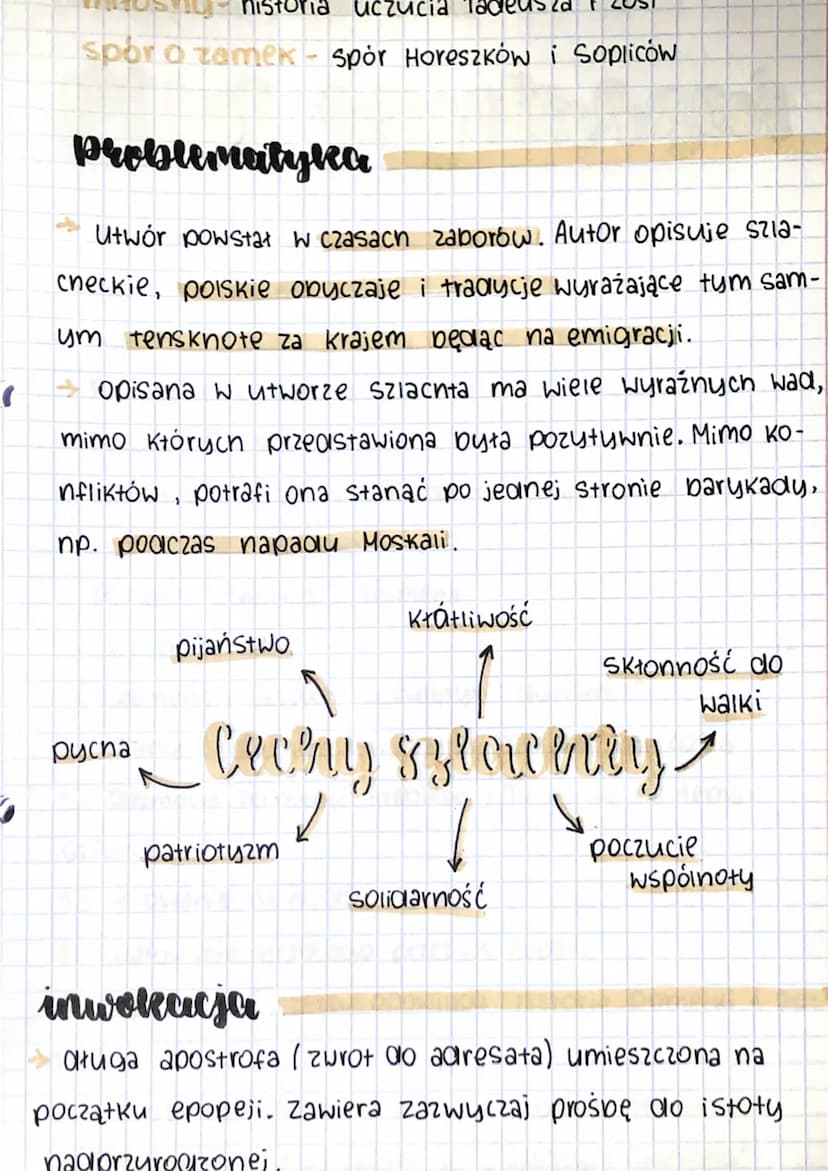 miłosny - historia uczucia Tadeusza i Zosi
spór o zamek - spór Horeszków i Sopliców
problematyka
→ Utwór powstał w czasach zaborów. Autor opisuje szla-
checkie, polskie obyczaje i tradycje wyrażające tym sam-
ym tensknote za krajem będąc na emigracji.
→ Opisana w utworze szlachta ma wiele wyraźnych wad,
mimo których przedstawiona była pozytywnie. Mimo ko-
nfliktów, potrafi ona stanąć po jednej stronie barykady,
np. podczas napadu Moskali.
kłótliwość
pijaństwo
skłonność do
walki
pycha
Cechy szlachty
patriotyzm
poczucie
wspólnoty
solidarność
inwokacja
→ długa apostrofa (zwrot do adresata) umieszczona na
początku epopeji. Zawiera zazwyczaj prośbę do istoty
nadprzyrodzonej.